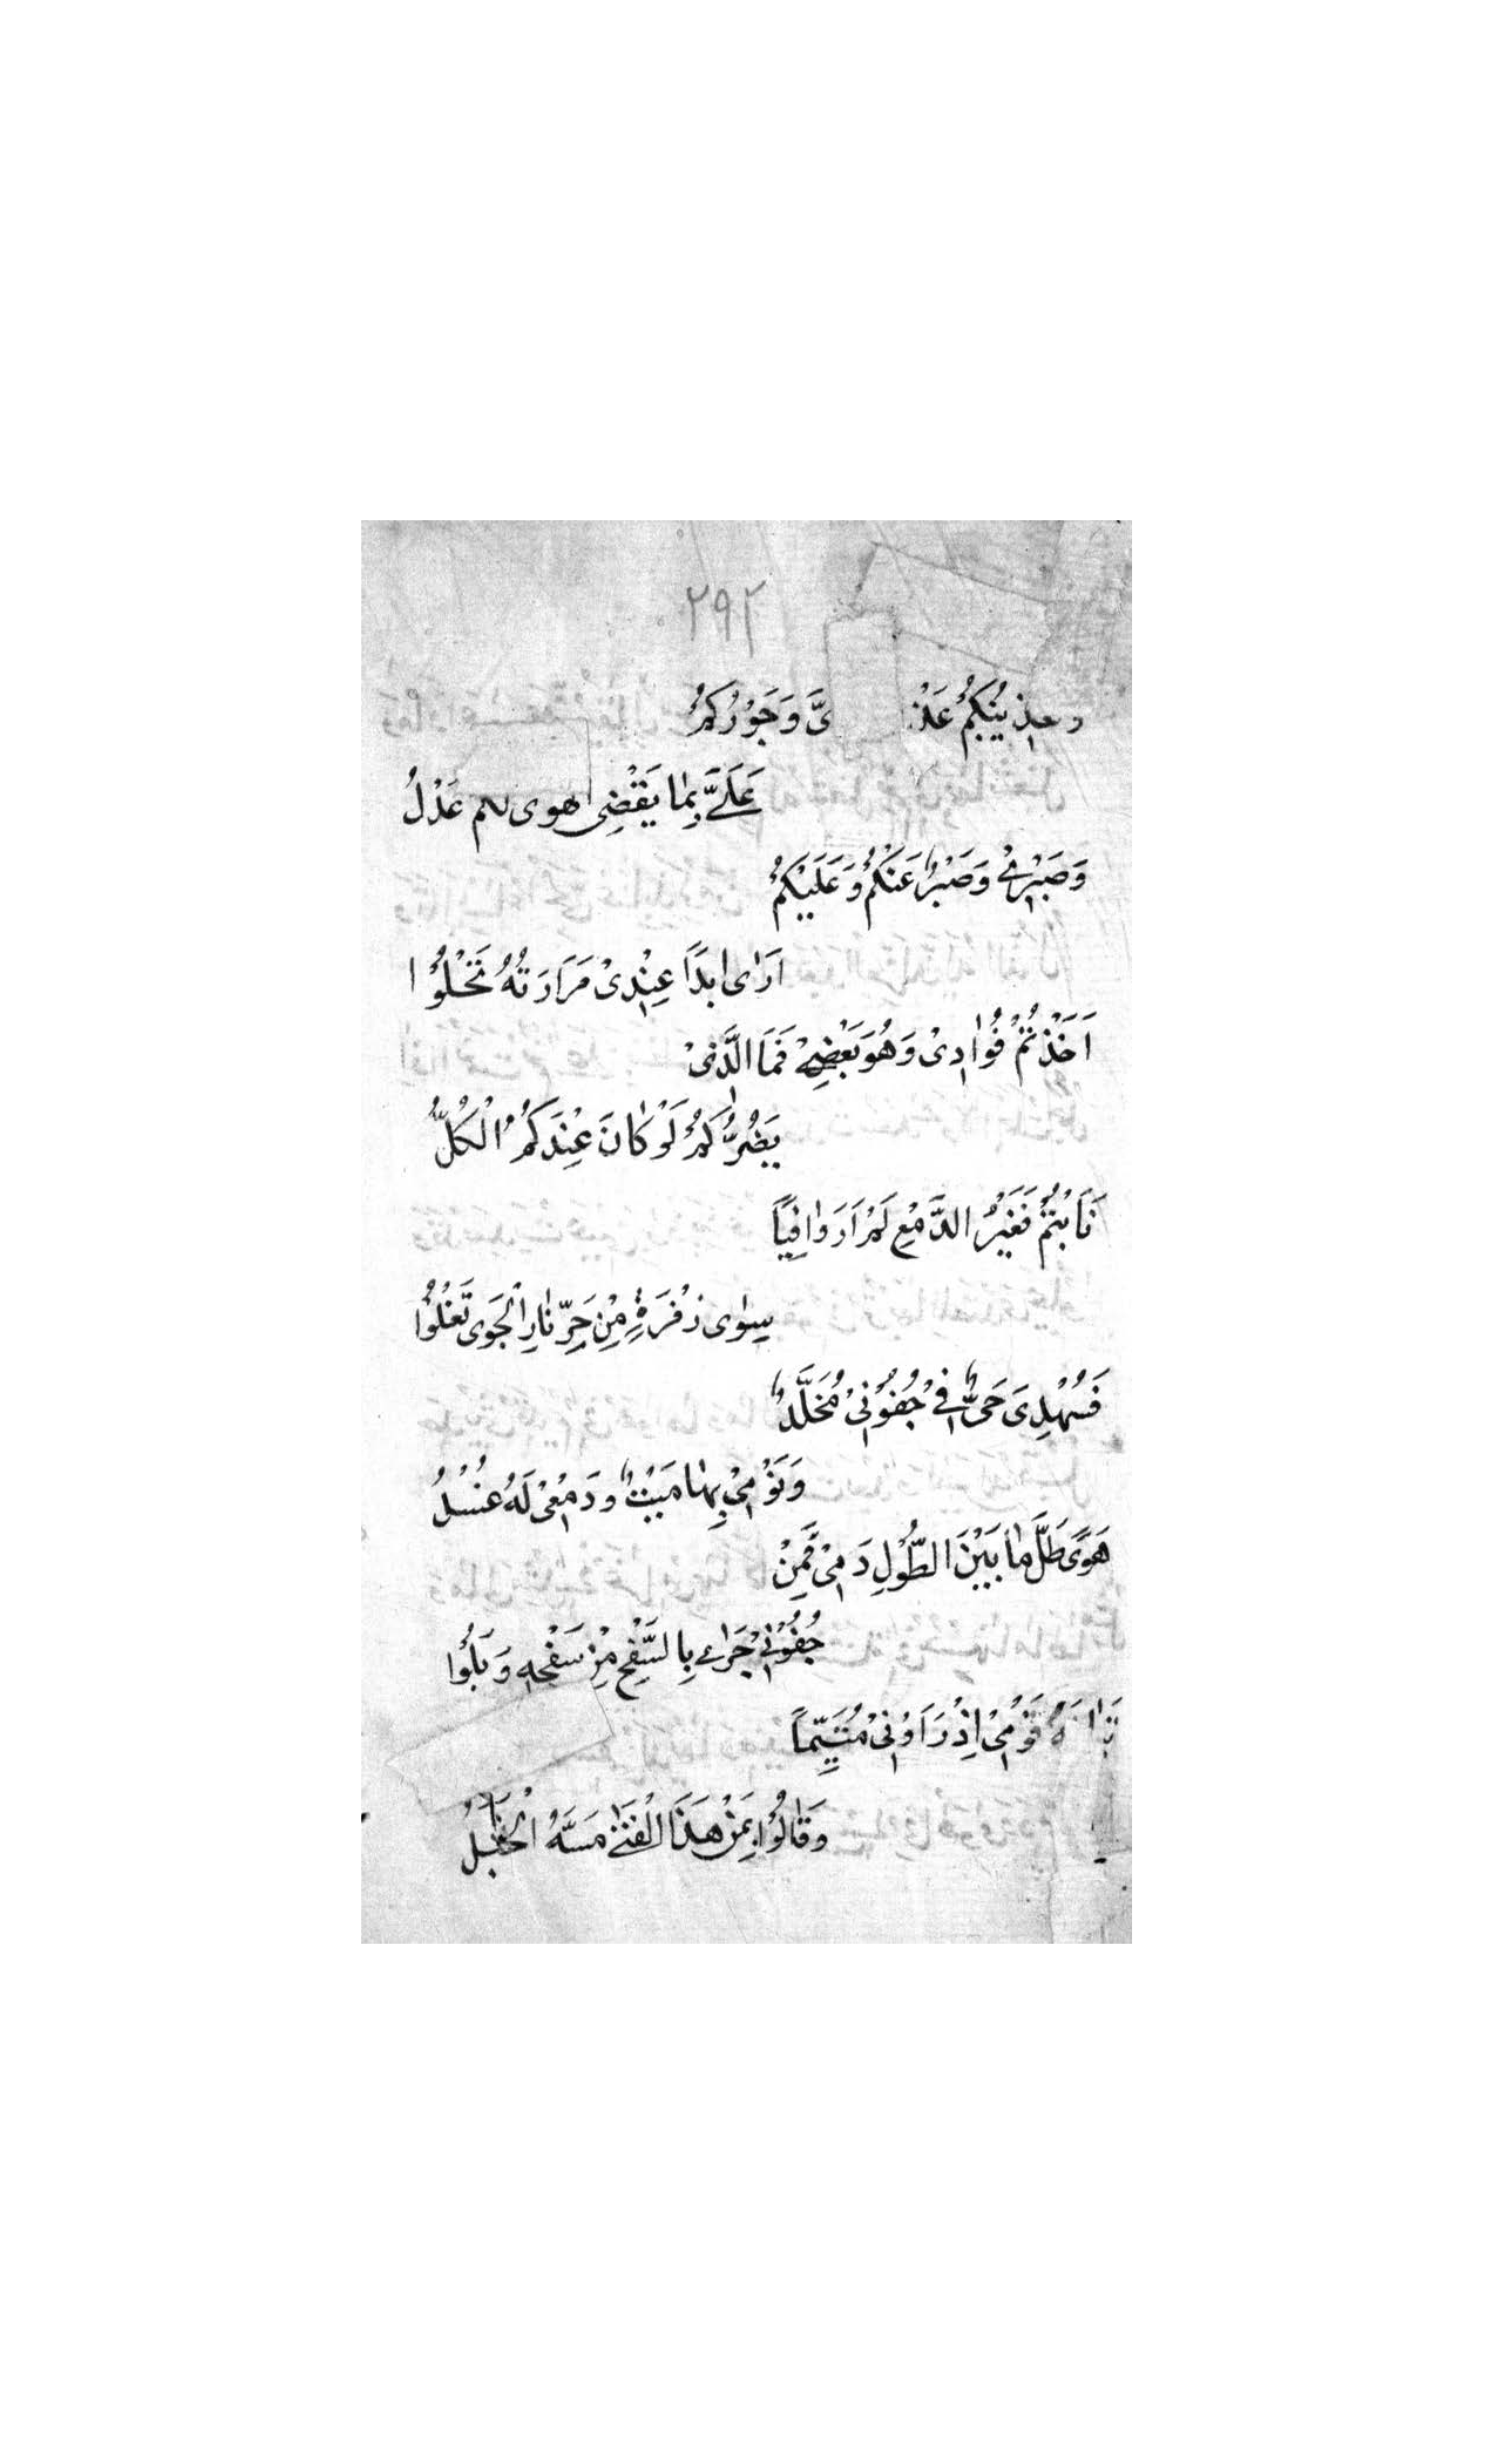 ٢٩٢
وتعذيبكم عذ يَّ وَجَوْرُكُمْ
عَلَيَّ بِمَا يَقْضِى الهوى لكم عَدْلُ
وَصَبْرِيْ وَصَبْرٌ عَنْكُمُ وَعَلَيْكُمُ
اَرَى اَبَدًا عِنْدِىْ مَرَارَتُهُ تَحْلُوْا
اَخَذْتُمْ فُوَادِىْ وَهُوَ بَعْضِىْ فَمَا الَّذِىْ
يَضُرُّكُمُ لَوْ كَانَ عِنْدَكُمُ الْكُلُّ
نَاَيْتُمْ فَغَيْرُ الدَّمْعِ لَمْ اَرَ وَافِيًا
سِوٰى زَفْرَةٍ مِنْ حَرِّ نَارِ الْجَوٰى تَغْلُوْا
فَسُهْدِىَ حَىٌّ فِىْ جُفُوْنِىْ مُخَلَّدٌ
وَنَوْمِىْ بِهَا مَيْتٌ وَدَمْعِىْ لَهُ غُسْلُ
هَوًى طَلَّ مَا بَيْنَ الطُّلُوْلِ دَمِىْ فَمِنْ
جُفُوْنِىْ جَرٰى بِالسَّفْحِ مِنْ سَفْحِهِ وَبْلُوْا
قَوْمِىْ اِذْ رَاَوْنِىْ مُتَيَّمًا
وَقَالُوْا بِمَنْ هَذَا الْفَتٰى مَسَّهُ الْخَبْلُ